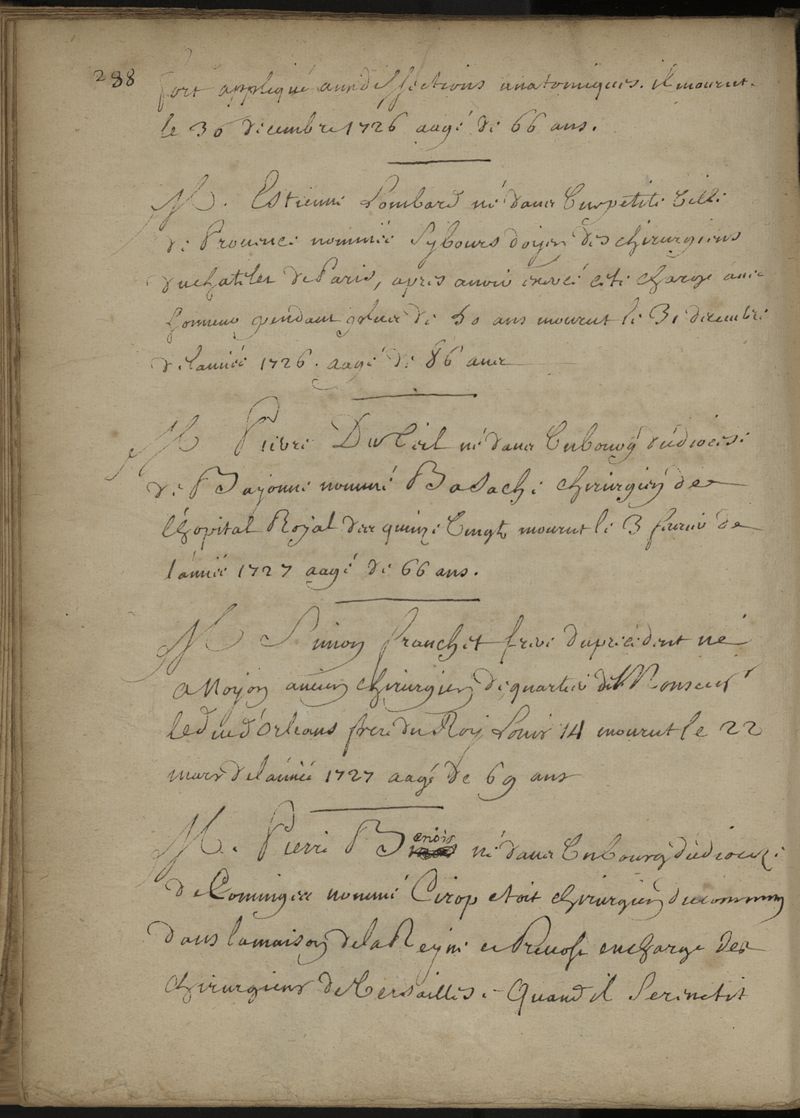 288
fort appliqué aux dissections anatomiques. il mourut
le 30 decembre 1726 aagé de 66 ans.
M. Estienne Lombard né dans une petite ville
de Prouence nommée doyen des chirurgiens
du chatelet de Paris, apres auoir exercé cete charge auec
honneur pendant plus de 50 ans mourut le 31 decembre
de l'année 1726. aagé de 86 ans
M Pierre né dans un bourg du diocese
de Bayonne nommé chirurgien de
l'hopital Royal des quinze vingts mourut le 3 feurier de
l'année 1727 aagé de 66 ans.
M Simon franchet frere du precedent né
a Noyon ancien chirurgien de quartier de Monsieur
le duc d'Orleans frere du Roy Louis 14 mourut le 22
mars de l'année 1727 aagé de 69 ans
M. Pierre né dans un bourg du diocese
de Cominges nommé Cirop etoit chirurgien du commun
dans la maison de la Reyne et Preuost en charge des
chirurgiens de Versailles. Quand il